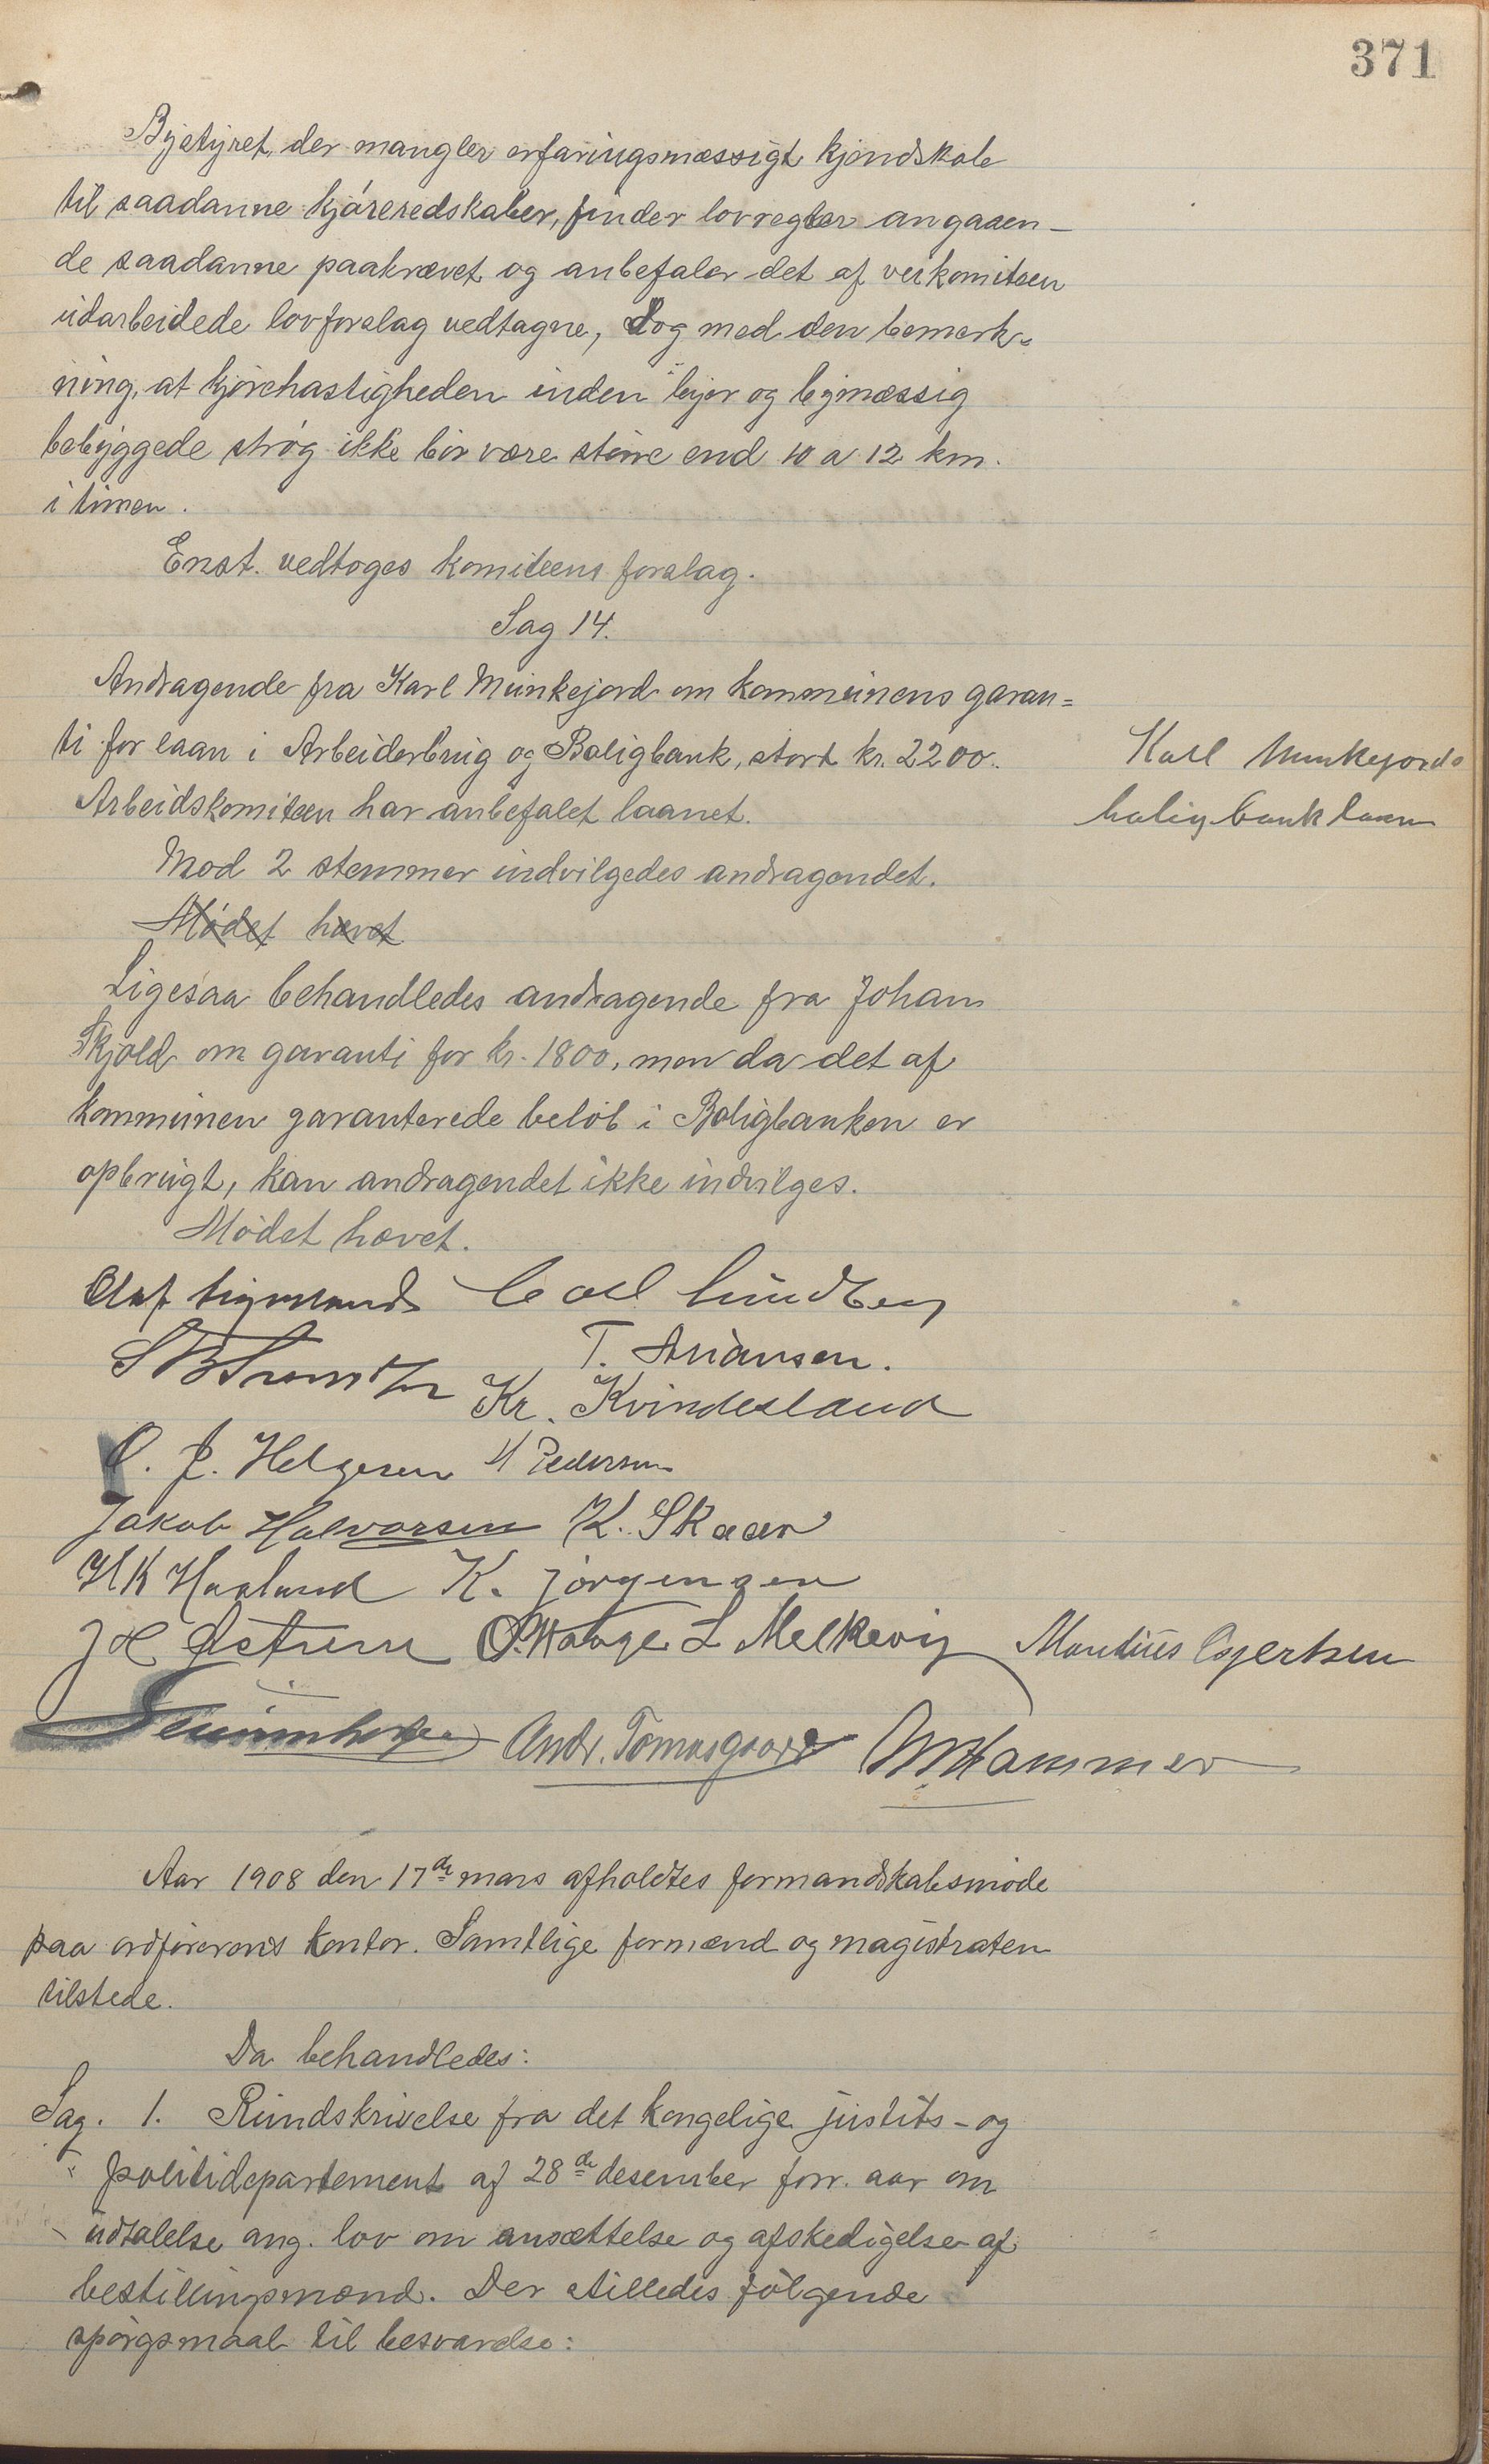 371
Bystyret, der mangler erfaringsmæssigt kjendskab
til saadanne kjøreredskaber, finder lovregler angaaen-
de saadanne paakrævet og anbefaler det af veikomiteen
udarbeidede lovforslag vedtagne, dog med den bemerk-
ning, at kjørehastigheden inden byer og bymæssig
bebyggede strøg ikke bør være større end 10 a 12 km.
i timen.
Enst. vedtoges komiteens forslag.
Sag 14.
Andragende fra Karl Munkejord om kommunens garan=
ti for laan i Arbeiderbrug og Boligbank, stort kr. 2200.
Karl Munkejords
Arbeidskomiteen har anbefalet laanet.
boligbanklaan
Mod 2 stemmer indvilgedes andragendet.
Mødet hævet
Ligesaa behandledes andragende fra Johan
Skjold om garanti for kr. 1800, men da det af
kommunen garanterede beløb i Boligbanken er
opbrugt, kan andragendet ikke indvilges.
Mødet hævet.
Olaf Carl Lundberg
T. Aniansen.
Kr. Kvindesland
O. J. Helgesen H Pedersen
Jakob Halvorsen K. Skaar
HK Haaland K. Jørgensen
O. Hauge L Melkevig Mandius Egertsen
Andr. Tomasgaard Hammer
Aar 1908 den 17de mars afholdtes formandskabsmøde
paa ordførerens kontor. Samtlige formænd og magistraten
tilstede.
Da behandledes:
Sag. 1. Rundskrivelse fra det kongelige justits- og
politidepartement af 28de desember forr. aar om
udtalelse ang. lov om ansættelse og afskedigelse af
bestillingsmænd. Der stilledes følgende
spørgsmaal til besvarelse: